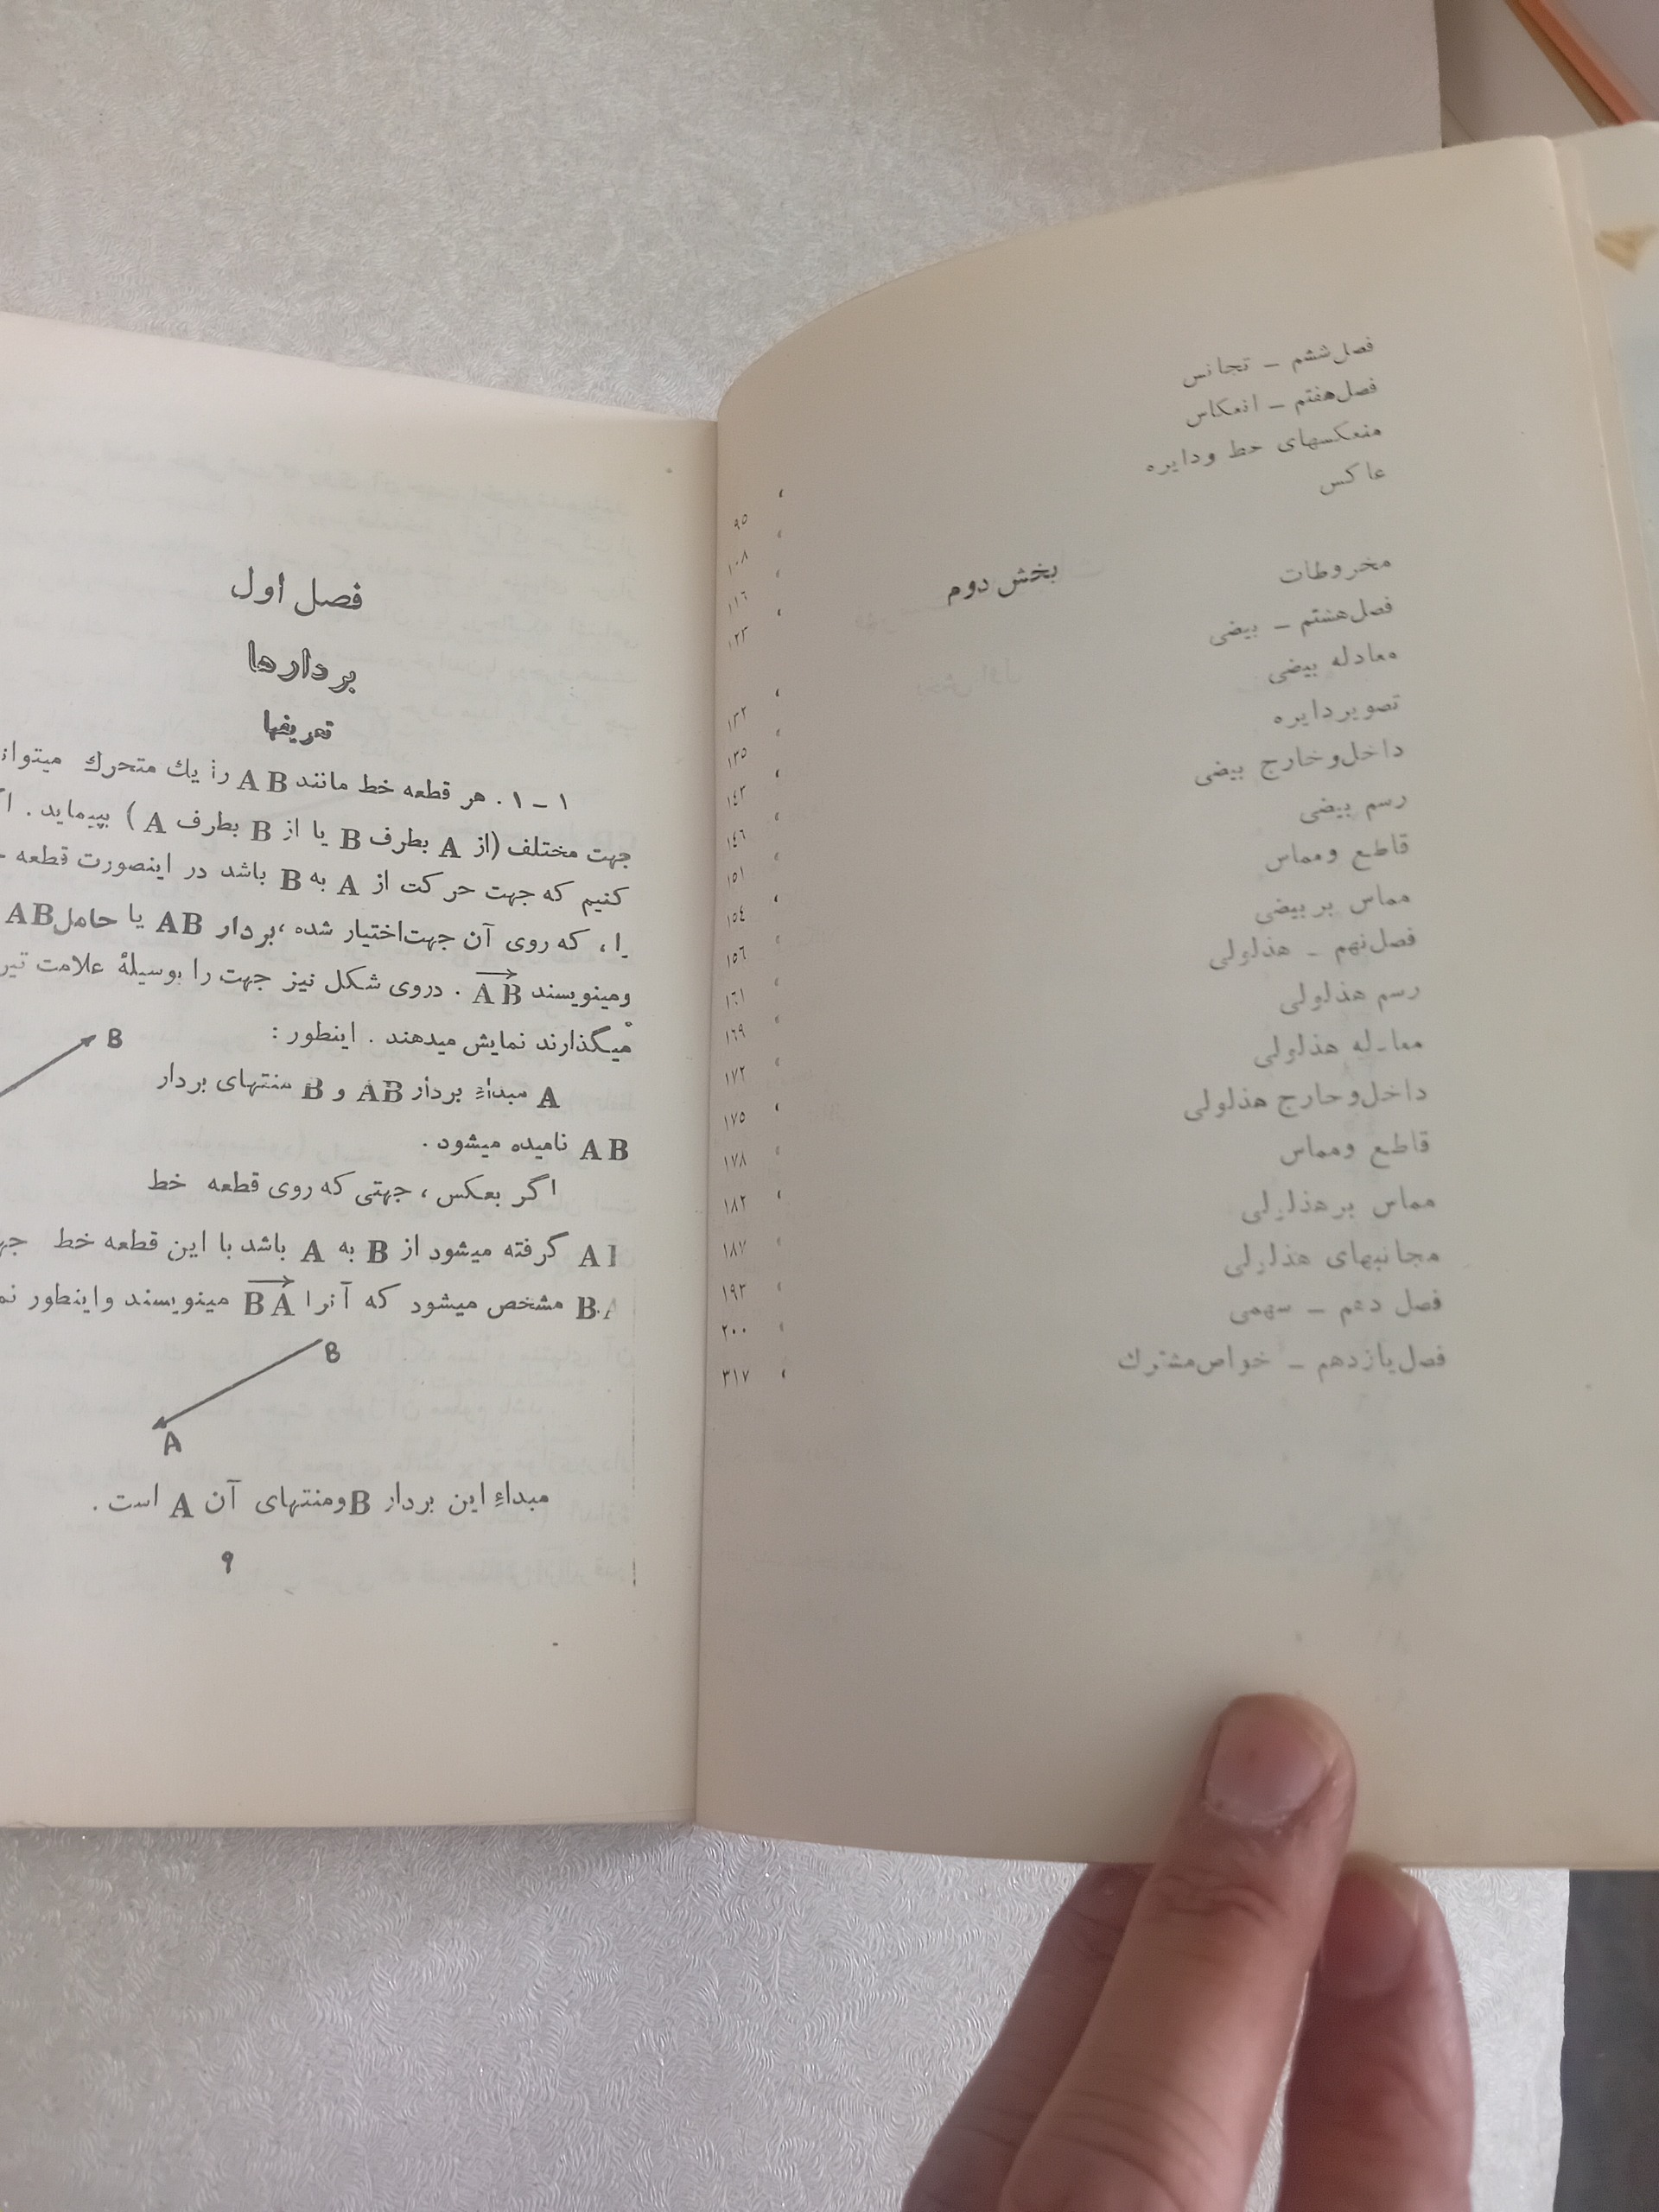 فصل ششم ــ تجانس ، ۹۵
فصل هفتم ــ انعکاس ، ۱۰۸
منعکسهای خط ودایره ، ۱۱٦
عاکس ، ۱۲۳
بخش دوم
مخروطات ، ۱۳۲
فصل هشتم ــ بیضی ، ۱۳۵
معادله بیضی ، ۱٤۳
تصویر دایره ، ۱٤٦
داخل و خارج بیضی ، ۱۵۱
رسم بیضی ، ۱۵٤
قاطع ومماس ، ۱۵٦
مماس بر بیضی ، ۱٦۱
فصل نهم ــ هذلولی ، ۱٦۹
رسم هذلولی ، ۱۷۲
معادله هذلولی ، ۱۷۵
داخل و خارج هذلولی ، ۱۷۸
قاطع ومماس ، ۱۸۲
مماس بر هذلولی ، ۱۸۷
مجانبهای هذلولی ، ۱۹۳
فصل دهم ــ سهمی ، ۲۰۰
فصل یازدهم ــ خواص مشترك ، ۳۱۷
فصل اول
بردارها
تعریفها
۱ – ۱ . هر قطعه خط مانند AB را یك متحرك
جهت مختلف (از A بطرف B یا از B بطرف A ) بپیماید .
کنیم که جهت حرکت از A به B باشد در اینصورت قطعه
، که روی آن جهت اختیار شده ، بردار AB یا حامل AB
ومینویسند AB . دروی شکل نیز جهت را بوسیلهٔ علامت تیر
میگذارند نمایش میدهند . اینطور :
B
A مبداءِ بردار AB و B منتهای بردار
AB نامیده میشود .
اگر بعکس ، جهتی که روی قطعه خط
گرفته میشود از B به A باشد با این قطعه خط
مشخص میشود که آنرا BA مینویسند واینطور
B
A
مبداءِ این بردار B ومنتهای آن A است .
۹